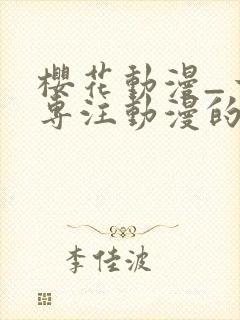 櫻花動漫_
專注動漫的
李佳波